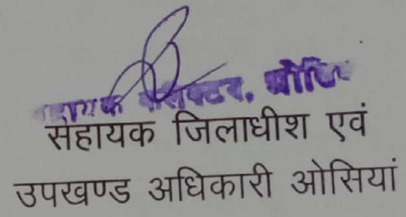 सहायक कलक्टर, ओसियां
सहायक जिलाधीश एवं
उपखण्ड अधिकारी ओसियां